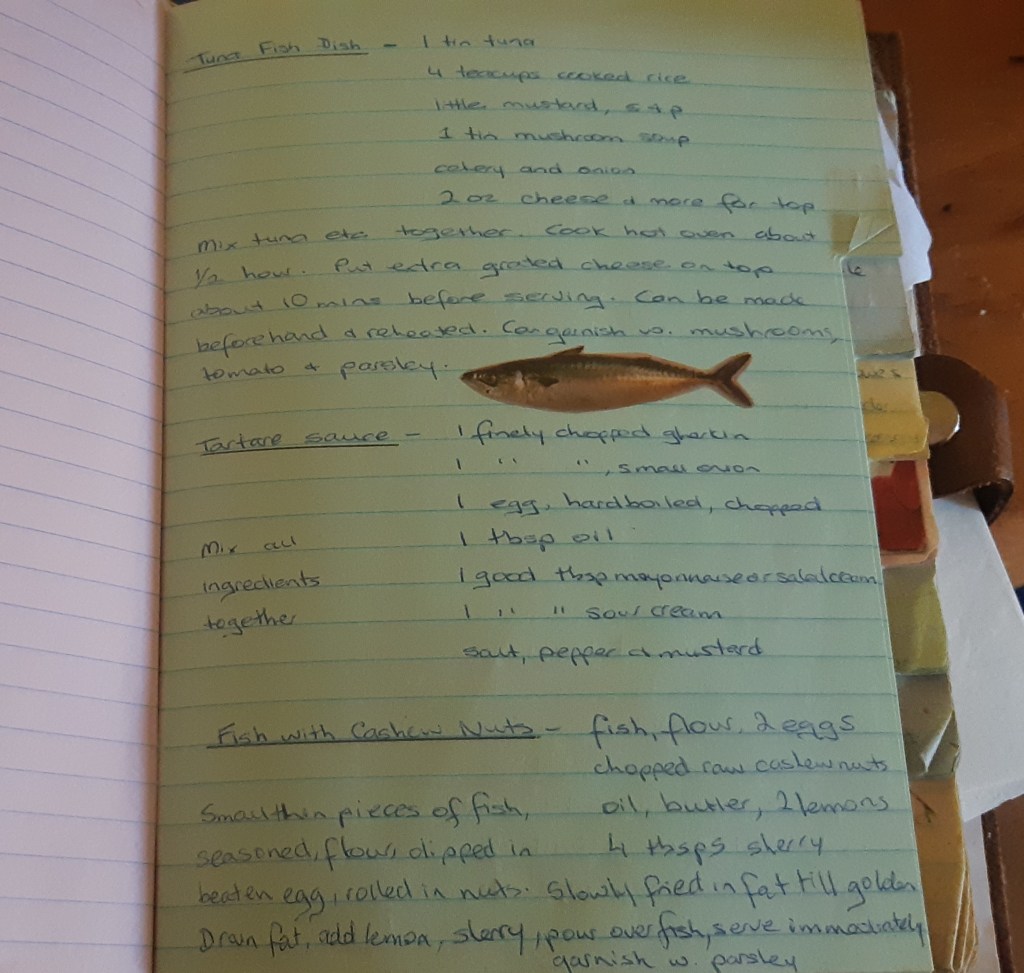 Tuna Fish Dish - 1 tin tuna
4 teacups cooked rice
little mustard, s + p
1 tin mushroom soup
celery and onion
2 oz cheese & more for top
Mix tuna etc together. Cook hot oven about
1/2 hour. Put extra grated cheese on top
about 10 mins before serving. Can be made
beforehand & reheated. Can garnish w. mushrooms,
tomato & parsley.
Tartare sauce - 1 finely chopped gherkin
1 " ", small onion
1 egg, hardboiled, chopped
Mix all 1 tbsp oil
ingredients 1 good tbsp mayonnaise or salad cream
together 1 " " sour cream
salt, pepper & mustard
Fish with Cashew Nuts - fish, flour, 2 eggs
chopped raw cashew nuts
Small thin pieces of fish, oil, butter, 2 lemons
seasoned, flour, dipped in 4 tbsps sherry
beaten egg, rolled in nuts. Slowly fried in fat till golden
Drain fat, add lemon, sherry, pour over fish, serve immediately
garnish w. parsley